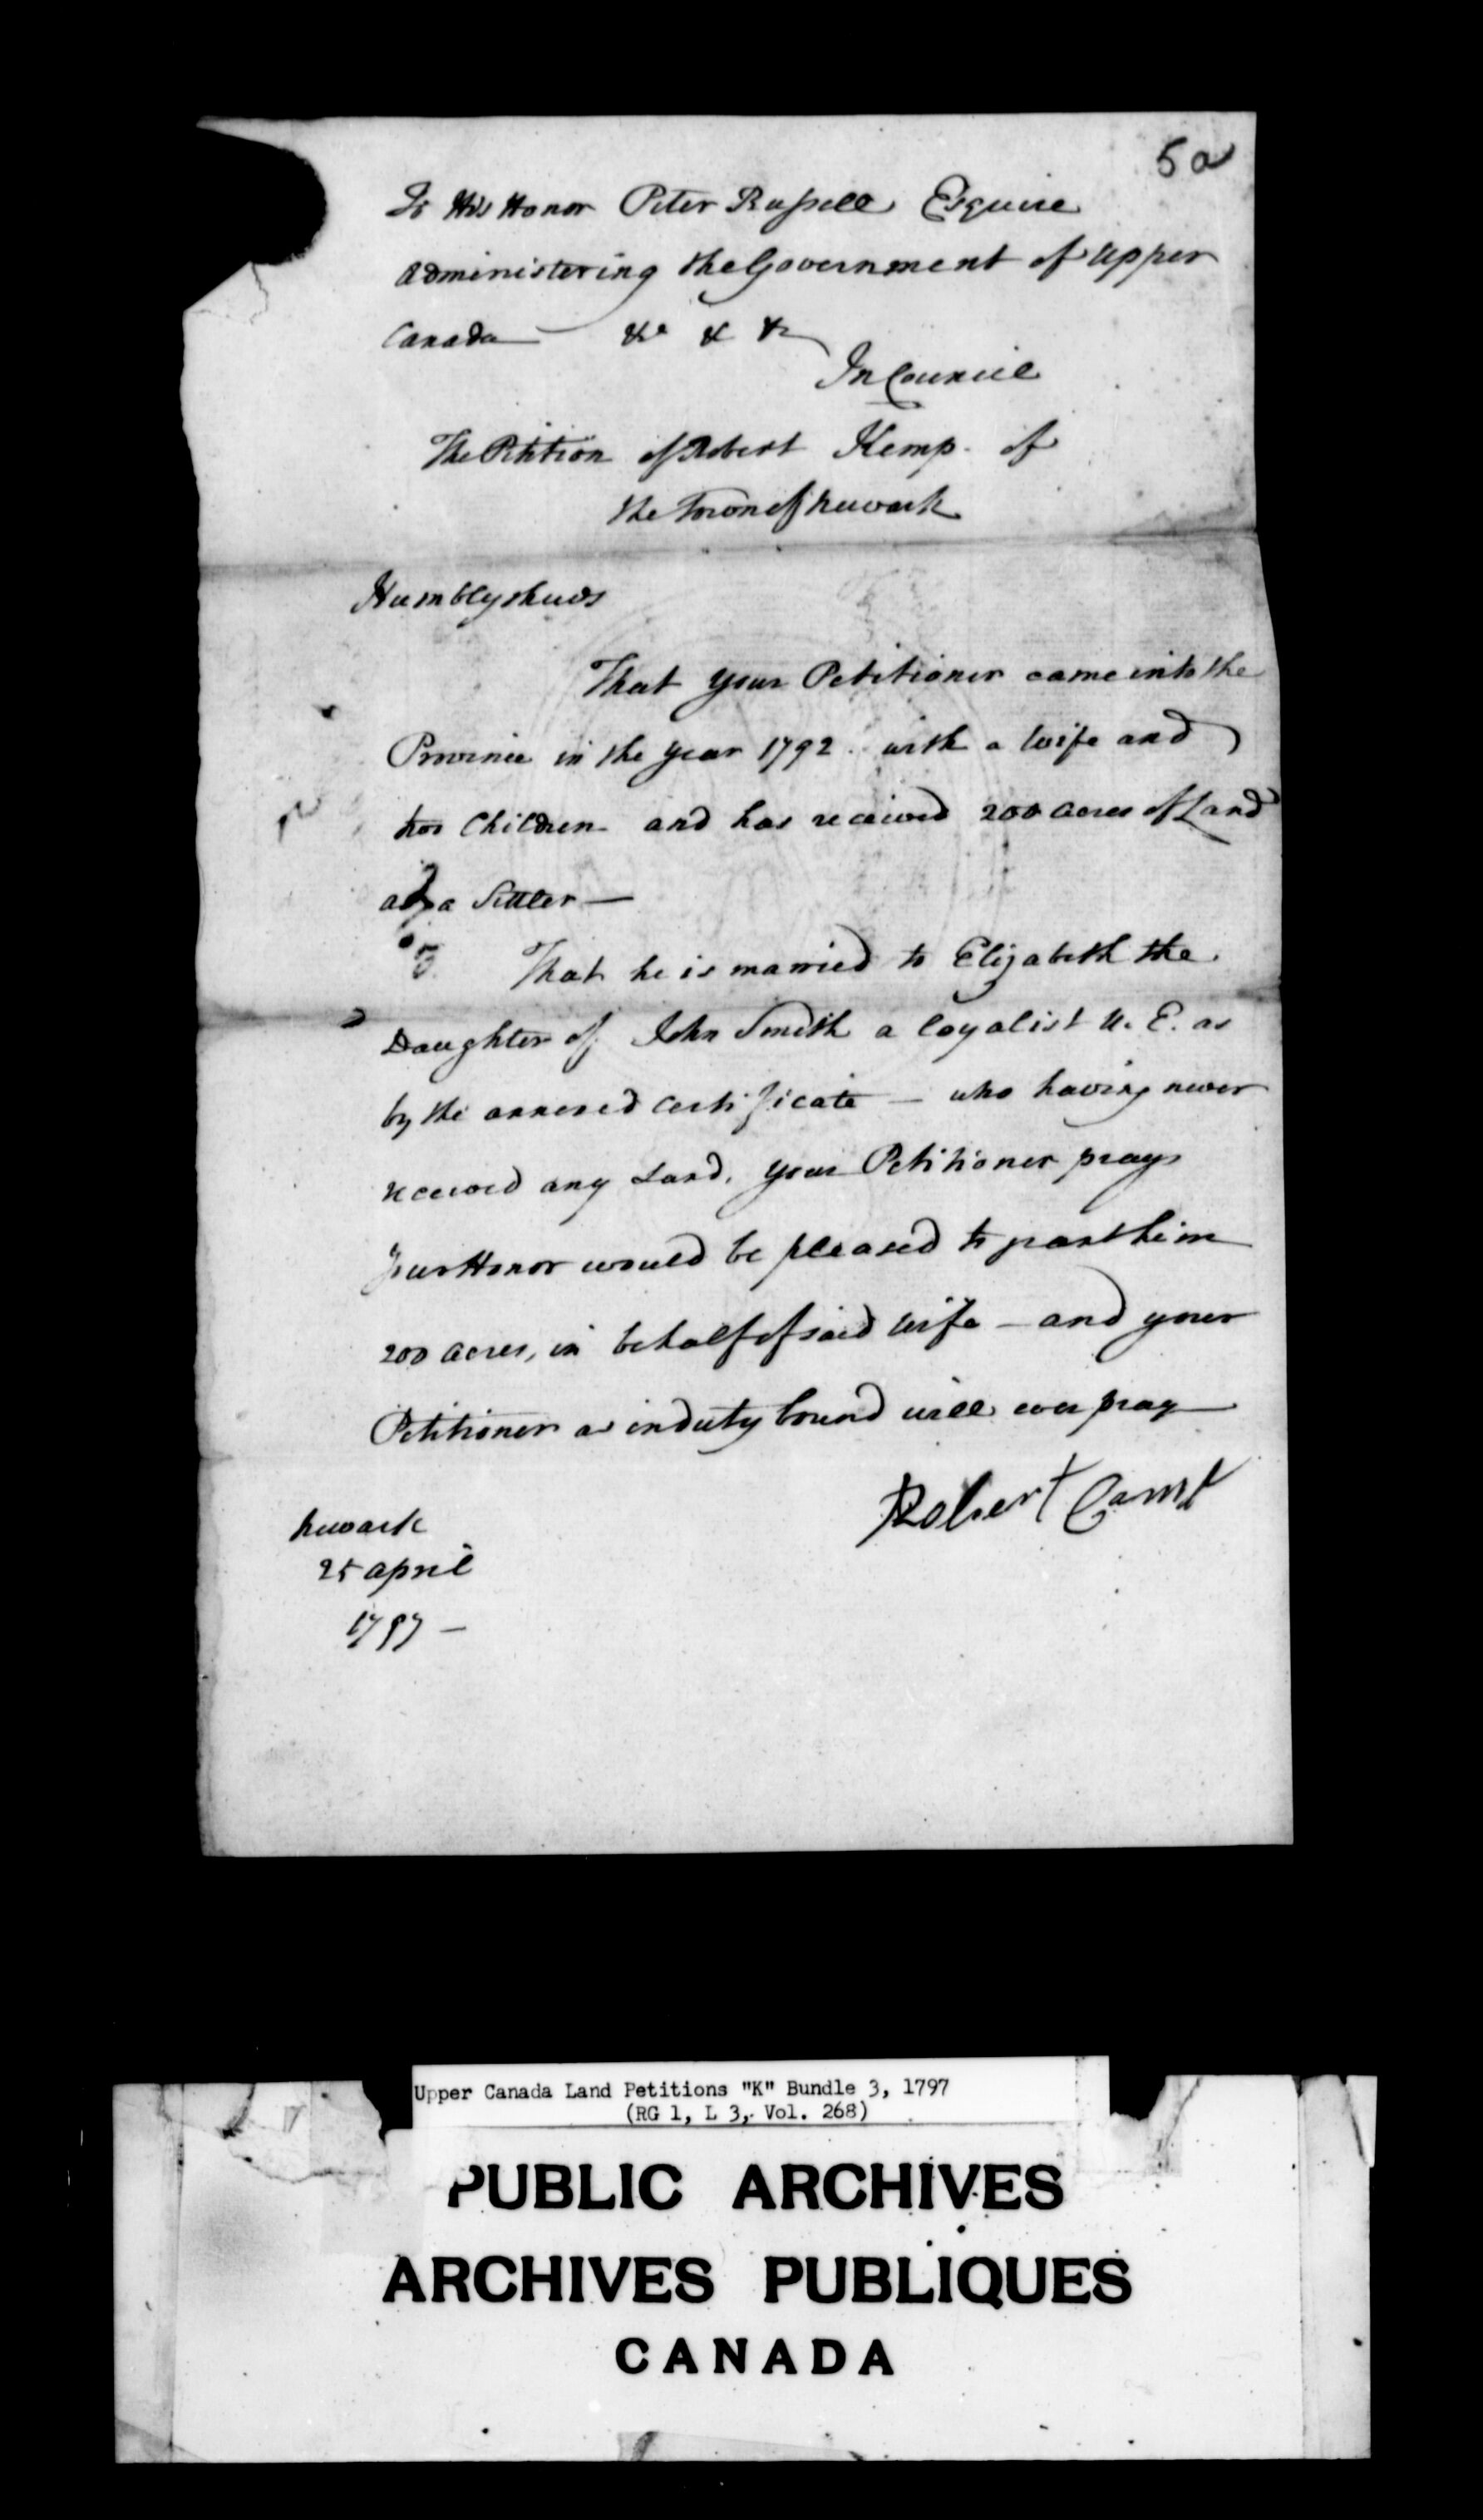 5a
To His Honor Peter Russell Esquire
administering the Government of Upper
Canada — &c & &c
In Council
The Petition of Robert Kemp. of
the Town of Newark
Humbly shews
That your Petitioner came into the
Province in the year 1792. with a wife and
two Children and has received 200 acres of Land
as a Settler —
That he is married to Elizabeth the
Daughter of John Smith a loyalist U. E. as
by the annexed certificate — who having never
received any Land, your Petitioner prays
your Honor would be pleased to grant him
200 acres, in behalf of said wife — and your
Petitioner as in duty bound will ever pray —
Robert Camp
Newark
25 april
1797 —
Upper Canada Land Petitions "K" Bundle 3, 1797
(RG 1, L 3, Vol. 268)
PUBLIC ARCHIVES
ARCHIVES PUBLIQUES
CANADA